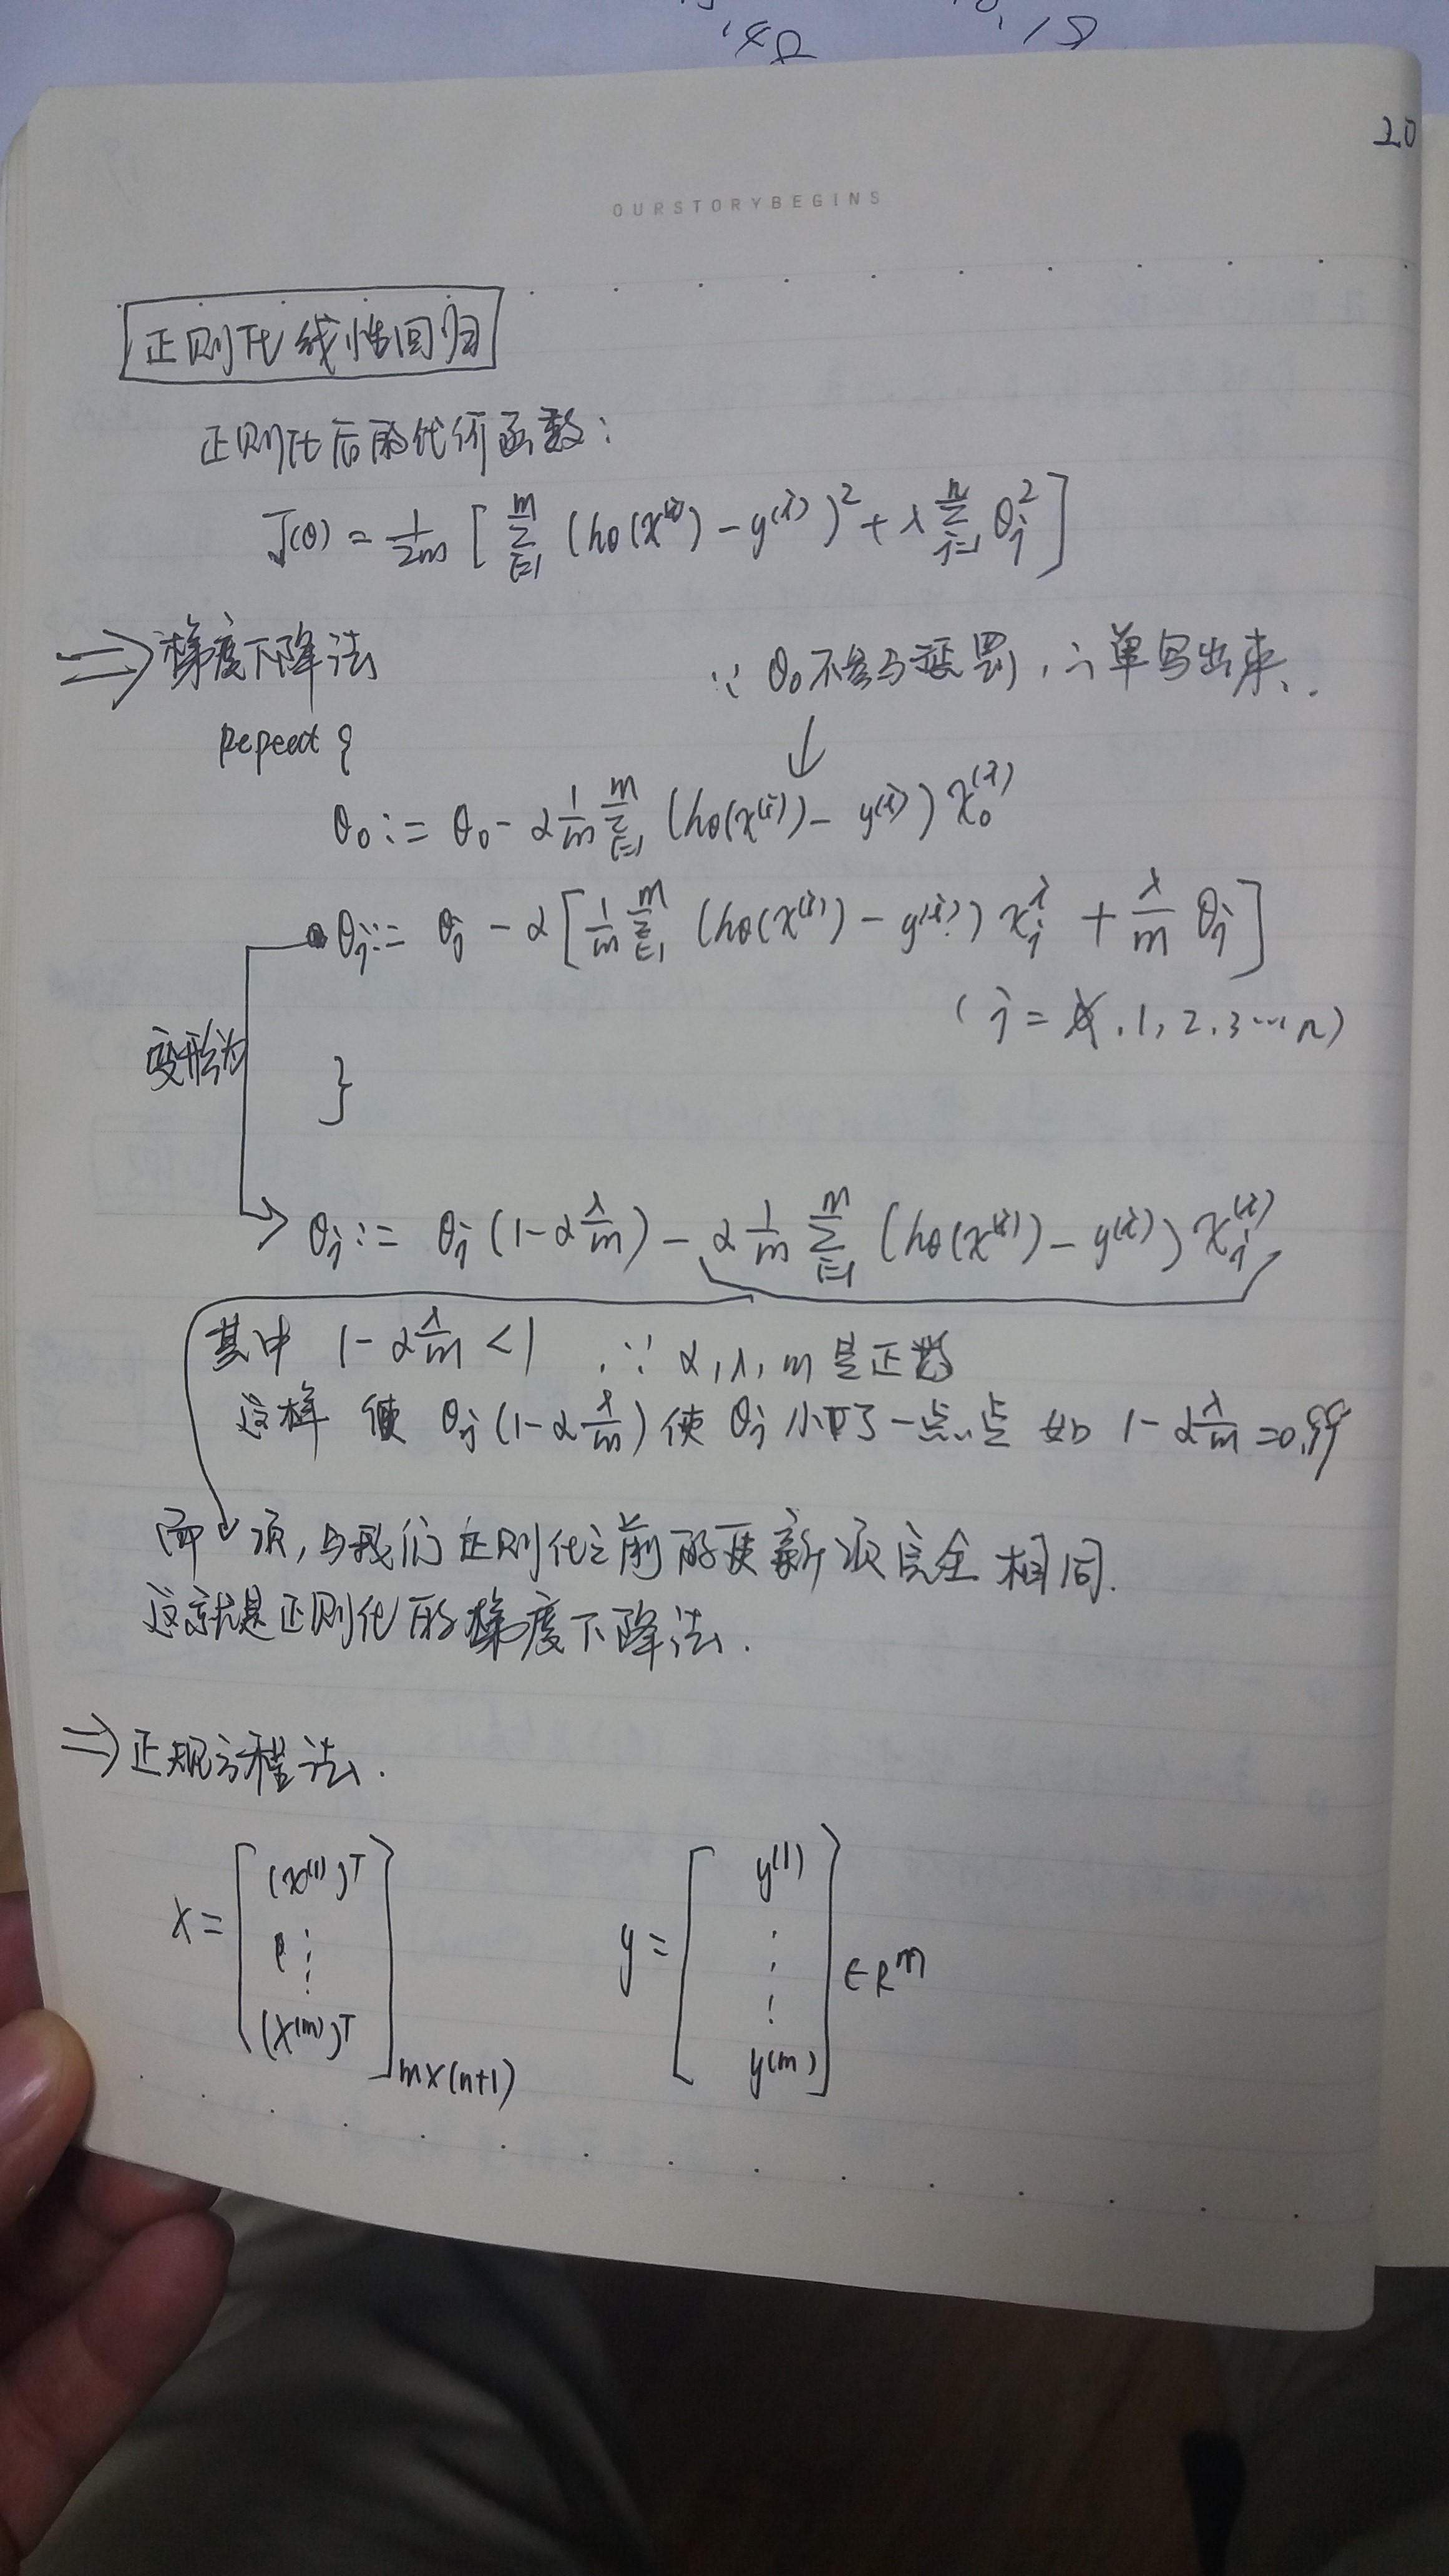 20
OURSTORYBEGINS
正则化线性回归
正则化后的代价函数:
J(θ) = 1/2m [ m∑i=1 (hθ(x^(i)) - y^(i))² + λ n∑j=1 θj² ]
⇒ 梯度下降法
∵ θ0不参与惩罚, ∴单写出来.
↓
Repeat {
θ0 := θ0 - α 1/m m∑i=1 (hθ(x^(i)) - y^(i)) x0^(i)
θj := θj - α [ 1/m m∑i=1 (hθ(x^(i)) - y^(i)) xj^i + λ/m θj ]
(j = 0̸, 1, 2, 3 ... n)
变形为
}
θj := θj (1 - α λ/m) - α 1/m m∑i=1 (hθ(x^(i)) - y^(i)) xj^(i)
其中 1 - α λ/m < 1 ∵ α, λ, m 是正数
这样 使 θj (1 - α λ/m) 使 θj 小了一点点 如 1 - α λ/m = 0.99
而 项, 与我们正则化之前的更新项完全相同.
这就是正则化的梯度下降法.
⇒ 正规方程法.
X = [ (x^(1))^T ⋮ (x^(m))^T ] m×(n+1) y = [ y^(1) ⋮ y^(m) ] ∈ R^m